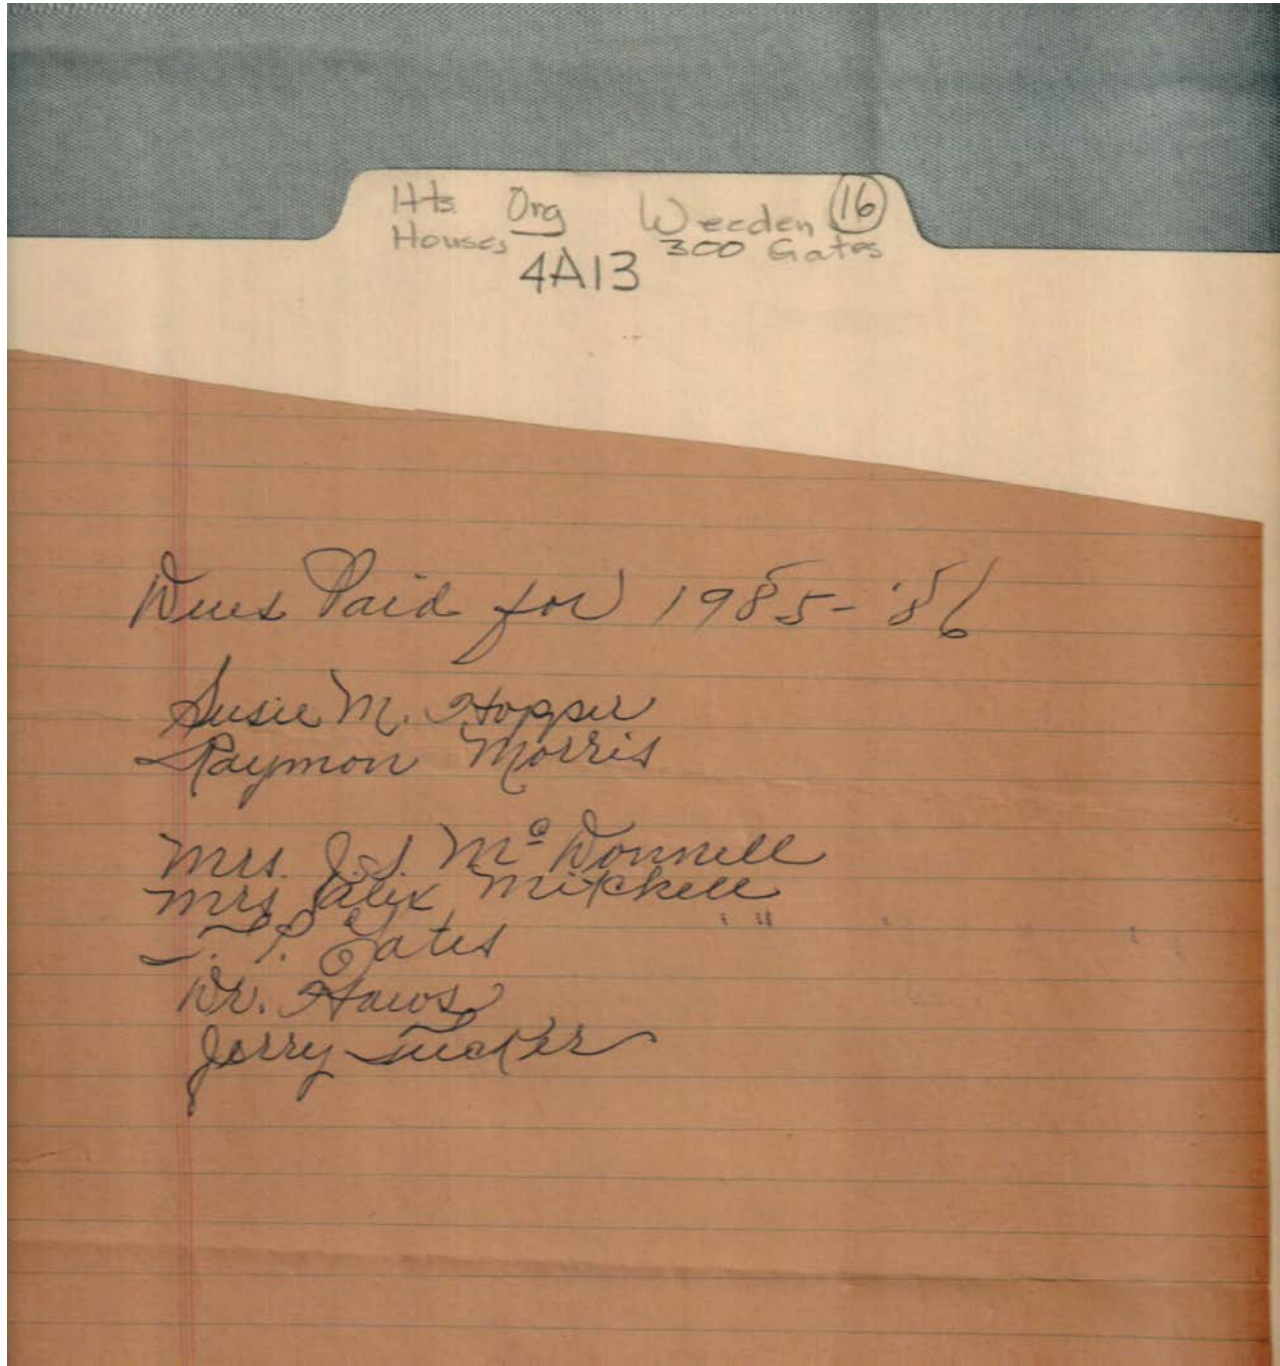 Hts. Org Weeden 16
Houses 300 Gates
4A13
Dues Paid for 1985-'86
Susie M. Hopper
Raymon Morris
Mrs. J.S. Mc Donnell
Mrs Alex Mitchell
T. P. Gates
Dr. Haws
Jerry Tucker